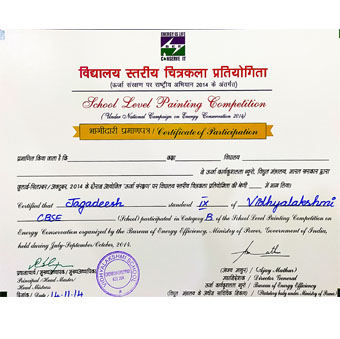 ENERGY IS LIFE
BEE
CONSERVE IT
विद्यालय स्तरीय चित्रकला प्रतियोगिता
(ऊर्जा संरक्षण पर राष्ट्रीय अभियान 2014 के अंतर्गत)
School Level Painting Competition
(Under National Campaign on Energy Conservation 2014)
भागीदारी प्रमाणपत्र / Certificate of Participation
प्रमाणित किया जाता है कि कक्षा विद्यालय
ने ऊर्जा कार्यकुशलता ब्यूरो, विद्युत मंत्रालय, भारत सरकार द्वारा
जुलाई-सितम्बर/अक्टूबर, 2014 के दौरान आयोजित 'ऊर्जा संरक्षण' पर विद्यालय स्तरीय चित्रकला प्रतियोगिता की श्रेणी में भाग लिया।
Certified that Jagadeesh standard IX of Vidhyalakshmi
CBSE (School) participated in Category B of the School Level Painting Competition on
Energy Conservation organized by the Bureau of Energy Efficiency, Ministry of Power, Government of India,
held during July-September/October, 2014.
Principal/Head Master/
Head Mistress
दिनांक/Date 14-11-14
VIDHYALAKSHMI SCHOOL
(अजय माथुर) (Ajay Mathur)
महानिदेशक / Director General
ऊर्जा कार्यकुशलता ब्यूरो / Bureau of Energy Efficiency
(Statutory body under Ministry of Power)